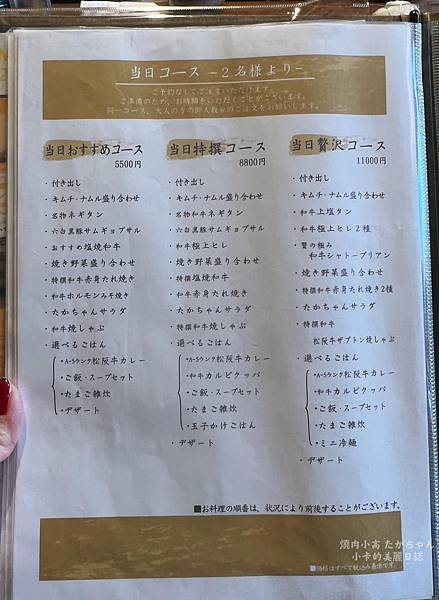 当日コース -２名様より-
ご予約なしでご注文いただけます。
ご準備のため、お時間をいただくことがございます。
同一コース、大人の方の御人数分のご注文をお願いします。
当日おすすめコース
5500円
・付き出し
・キムチ・ナムル盛り合わせ
・名物ネギタン
・六白黒豚サムギョプサル
・おすすめ塩焼和牛
・焼き野菜盛り合わせ
・特撰和牛赤身たれ焼き
・和牛ホルモンみそ焼き
・たかちゃんサラダ
・和牛焼しゃぶ
・選べるごはん
・A-5ランク松阪牛カレー
・ご飯・スープセット
・たまご雑炊
・デザート
当日特撰コース
8800円
・付き出し
・キムチ・ナムル盛り合わせ
・名物和牛ネギタン
・六白黒豚サムギョプサル
・和牛極上ヒレ
・焼き野菜盛り合わせ
・特撰塩焼和牛
・和牛赤身たれ焼き
・たかちゃんサラダ
・特撰和牛焼しゃぶ
・選べるごはん
・A-5ランク松阪牛カレー
・和牛カルビクッパ
・ご飯・スープセット
・たまご雑炊
・玉子かけごはん
・デザート
当日贅沢コース
11000円
・付き出し
・キムチ・ナムル盛り合わせ
・和牛上塩タン
・和牛極上ヒレ２種
・贅の極み
和牛シャトーブリアン
・焼き野菜盛り合わせ
・特撰和牛赤身たれ焼き2種
・たかちゃんサラダ
・特撰和牛
松阪牛ザブトン焼しゃぶ
・選べるごはん
・A-5ランク松阪牛カレー
・和牛カルビクッパ
・ご飯・スープセット
・たまご雑炊
・ミニ冷麺
・デザート
■お料理の順番は、状況により前後することがございます。
■価格はすべて税込み表示です。
燒肉小高 たかちゃん
小卡的美麗日誌